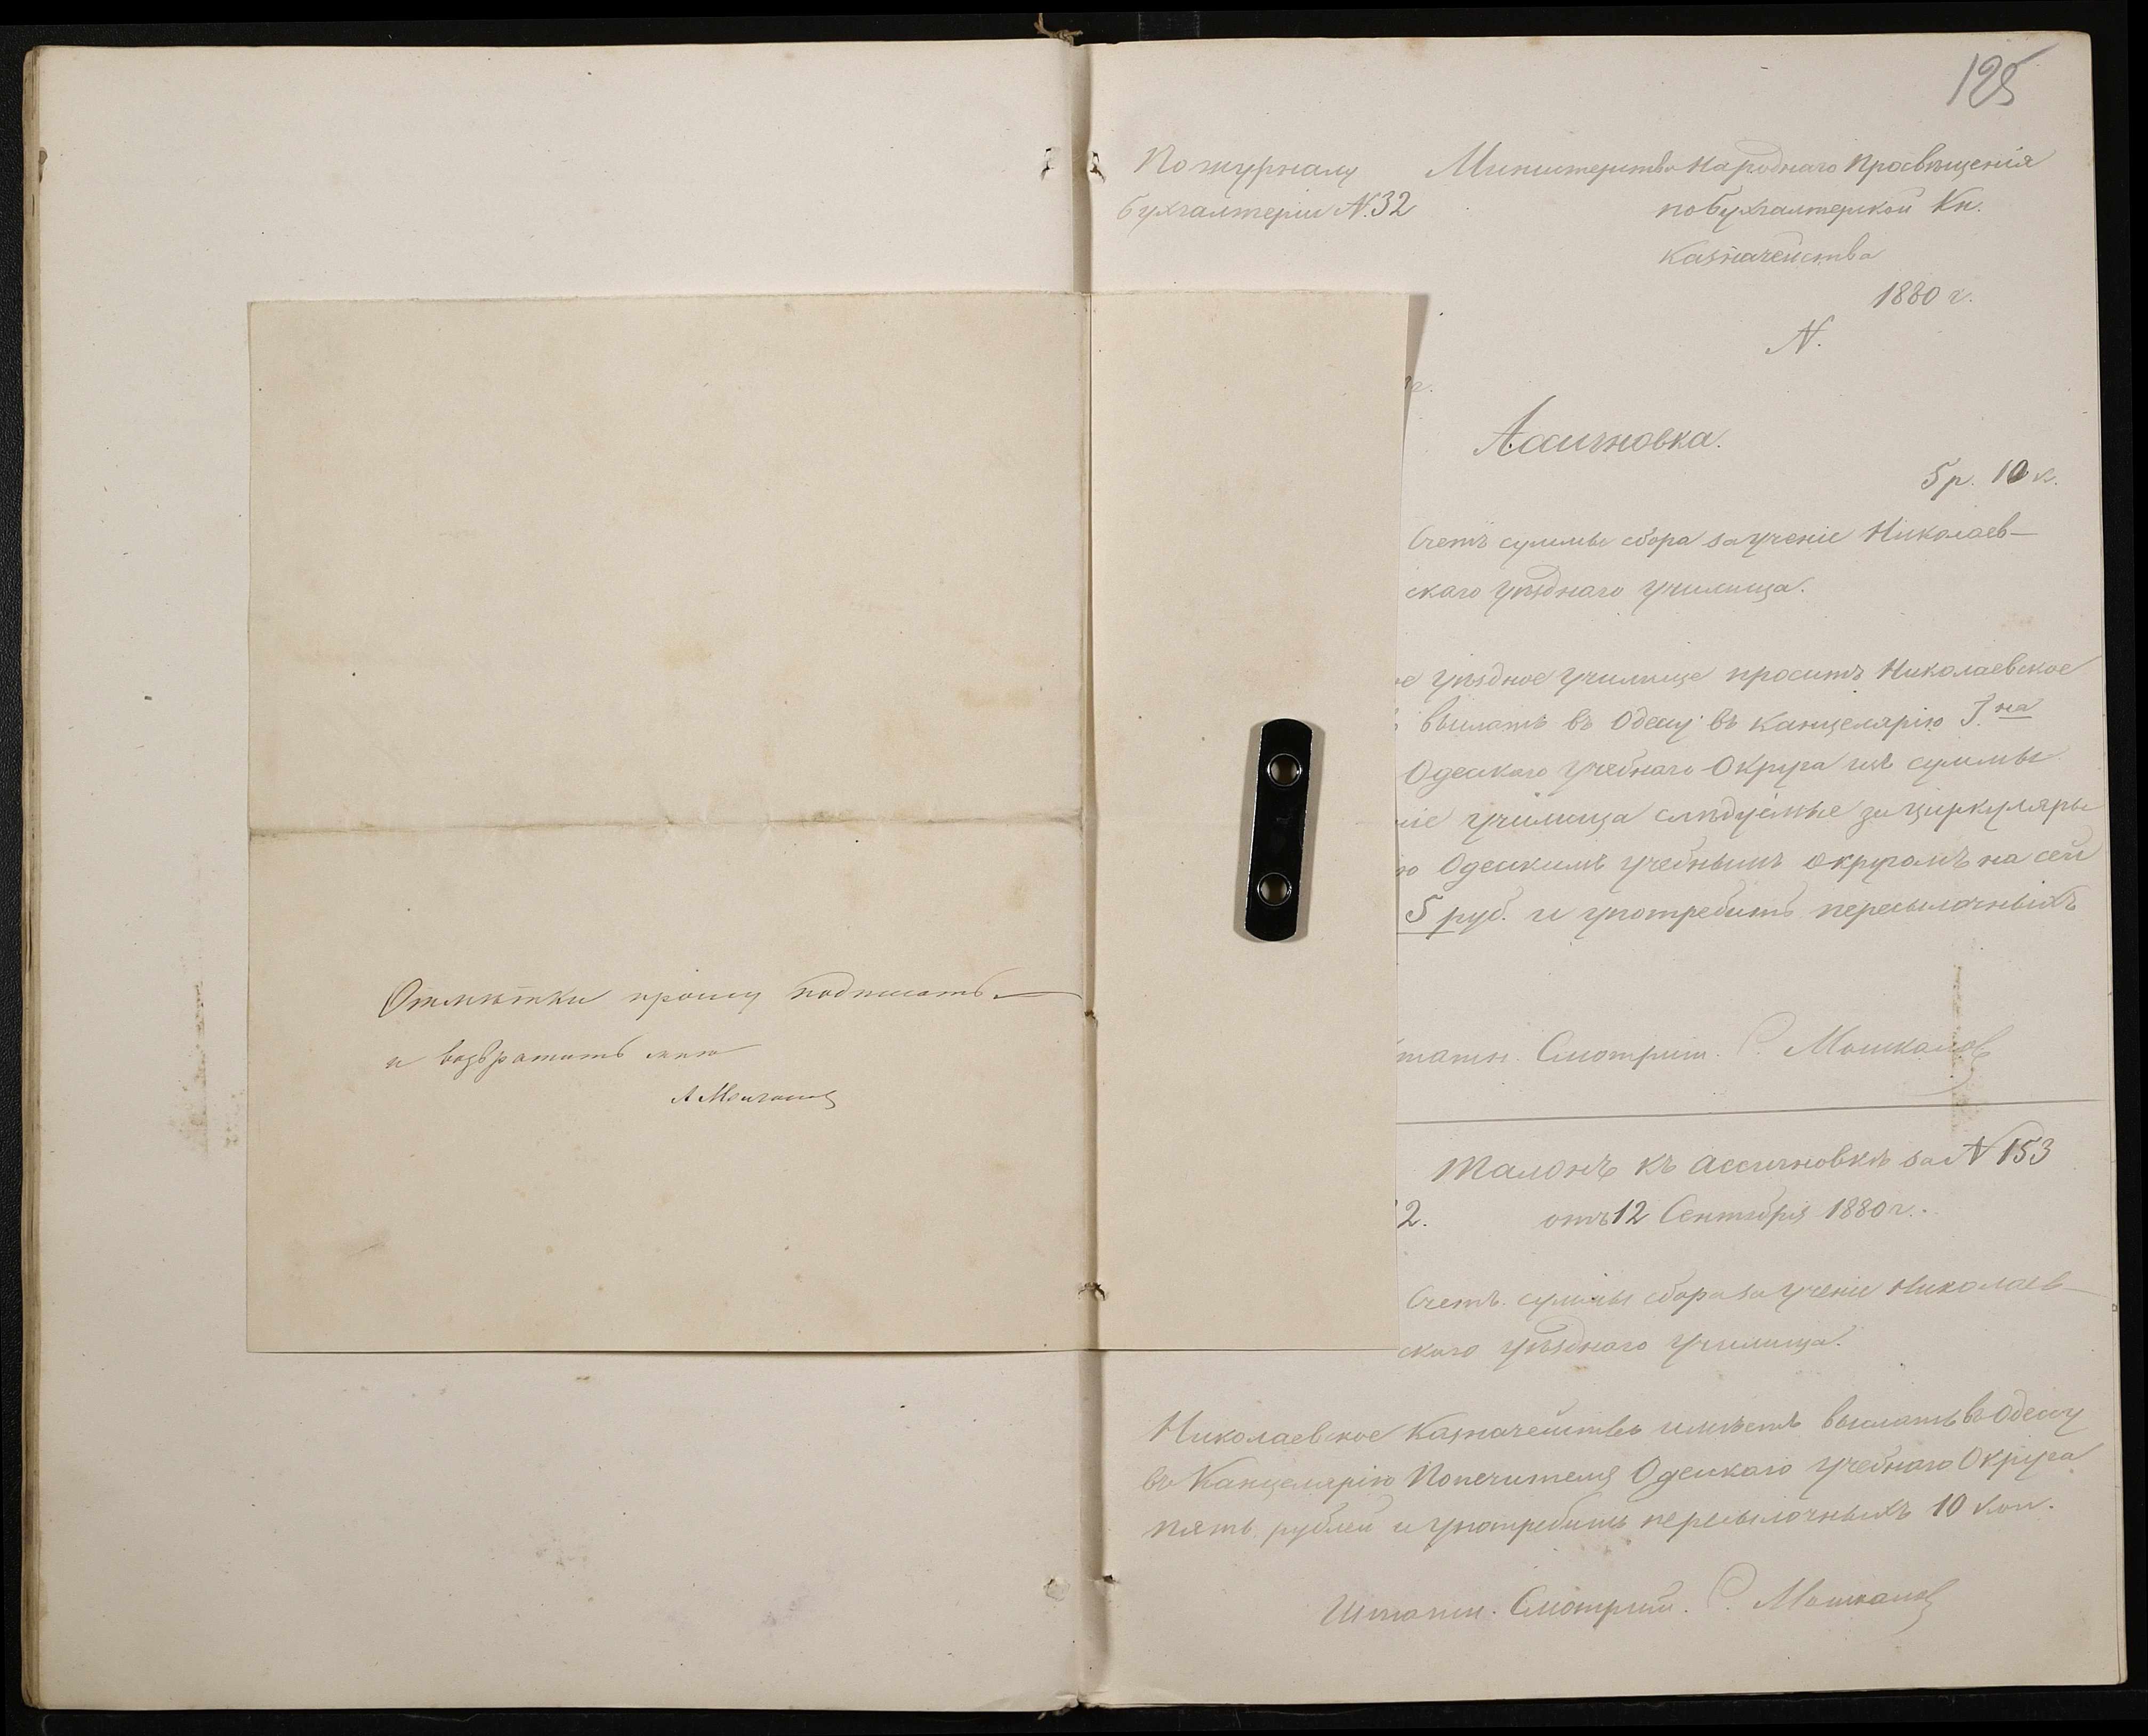 125
По журналу
бухгалтеріи N. 32
Министерство Народнаго Просвѣщенія
по бухгалтерской Кн.
Казначейства
1880 г.
N.
г.
Ассигновка.
5 р. 10 к.
Счетъ суммы сбора за ученіе Николаев-
скаго уѣзднаго училища.
е уѣздное училище проситъ Николаевское
выслать въ Одессу въ Канцелярію Г.на
Одесскаго Учебнаго Округа изъ суммы
ніе училища слѣдуемые за циркуляры
по Одесскимъ учебнымъ округомъ на сей
5 руб. и употребить пересылочныхъ
татн. Смотрит. С. Мошкалов
Отмѣтки прошу подписать
и возвратить мнѣ
Талонъ къ ассигновкѣ за N 153
2. отъ 12 Сентября 1880 г.
Счетъ суммы сбора за ученіе Николаев-
скаго уѣзднаго училища.
Николаевское Казначейство имѣетъ выслать въ Одессу
въ Канцелярію Попечителя Одесскаго учебнаго Округа
пять рублей и употребить пересылочныхъ 10 коп.
Штатн. Смотрит. С. Мошкалов